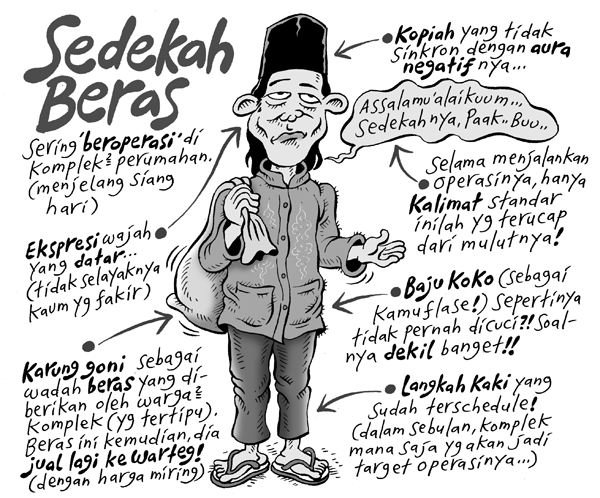 Sedekah
Beras
Sering 'beroperasi' di
Komplek² perumahan.
(menjelang siang
hari)
Ekspresi wajah
yang datar...
(tidak selayaknya
kaum yg fakir)
Karung goni sebagai
wadah beras yang di-
berikan oleh warga²
Komplek (yg tertipu).
Beras ini kemudian, dia
jual lagi ke warteg!
(dengan harga miring)
Kopiah yang tidak
sinkron dengan aura
negatifnya...
Assalamu'alaikuum...
Sedekahnya, Paak.. Buu..
Selama menjalankan
operasinya, hanya
Kalimat standar
inilah yg terucap
dari mulutnya!
Baju Koko (sebagai
Kamuflase!) Sepertinya
tidak pernah dicuci?! Soal-
nya dekil banget!!
Langkah Kaki yang
Sudah terschedule!
(dalam sebulan, komplek
mana saja yg akan jadi
target operasinya...)